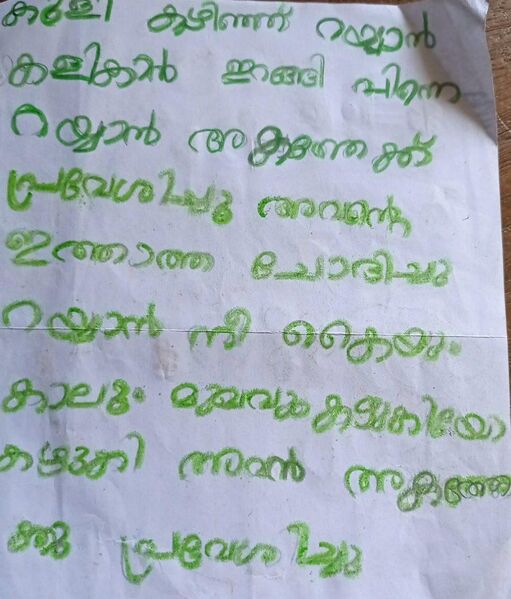 കുളി കഴിഞ്ഞ് റയ്യാൻ
കളികാൻ ഇറങ്ങി പിന്നെ
റയ്യാൻ അകത്തേക്ക്
പ്രവേശിച്ചു അവന്റെ
ഇത്താത്ത ചോദിച്ചു
റയ്യാൻ നീ കൈയും
കാലും മുഖവും കഴുകിയോ
കഴുകി അവൻ അകത്തേ
ക്കു പ്രവേശിച്ചു